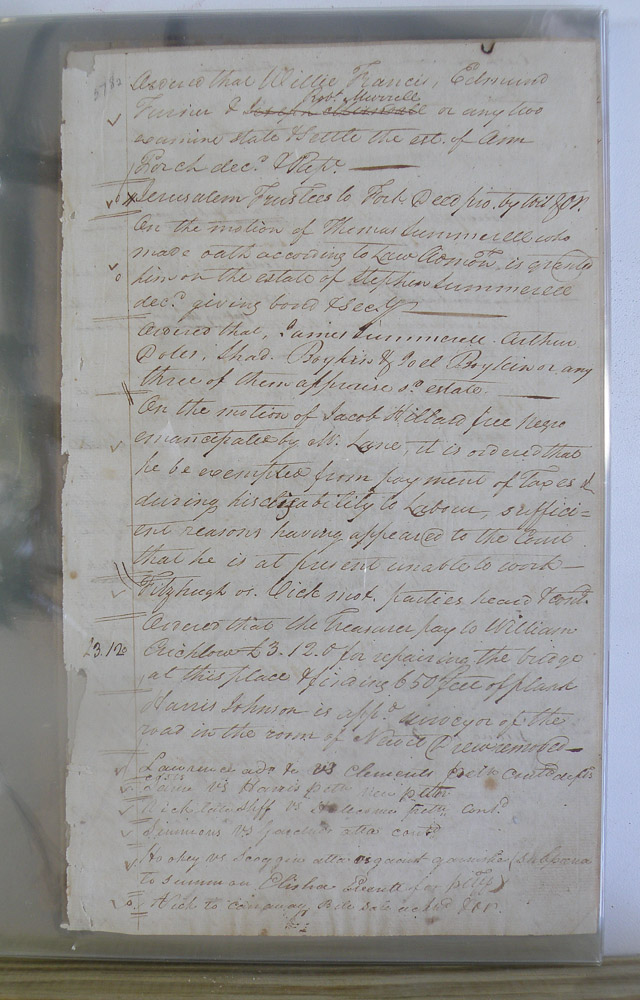 Ordered that Willie Francis, Edmund
Robt. Murrell
Turner & or any two
examine state & settle the est. of Ann
Porch decd. & Rept.
Jerusalem Trustees to Fort Deed pro. by wit & OR.
On the motion of Thomas Summerell who
made oath according to Law Admon. is granted
him on the estate of Stephen Summerell
decd. giving bond & Secy.
Ordered that, James Summerell. Arthur
Doles, Shad. Boykin & Joel Boykin or any
three of them appraise sd. estate.
On the motion of Jacob Hillard free negro
emancipated by M. Lane, it is ordered that
he be exempted from payment of Taxes &
during his disability to Labour, suffici=
ent reasons having appeared to the Court
that he is at present unable to work—
Fitzhugh vs. Dick mot. parties heard & cont.
Ordered that the Treasurer pay to William
£3.12.0 Crichlow £3.12.0 for repairing the bridge
at this place & finding 650 feet of plank
Harris Johnson is appd. surveyor of the
road in the room of Drew removed—
Lawrence adr &c vs Clements petn. contd. defts
Same vs Harris petn. new petn.
late Shff vs petn. contd.
Simmons vs attat contd
vs Scoggin attat vs garnishee (subpoena
to summon Elisha for )
to Conaway, Bill Sale ackd. & OR.